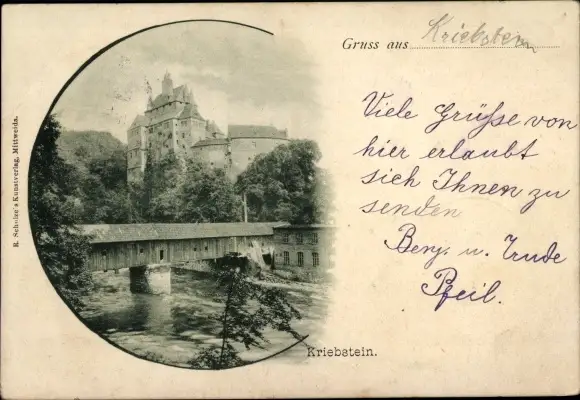 Gruss aus Kriebstein
Viele Grüße von
hier erlaubt
sich Ihnen zu
senden
Benj. u. Trude
Pfeil.
Kriebstein.
R. Schulze's Kunstverlag, Mittweida.